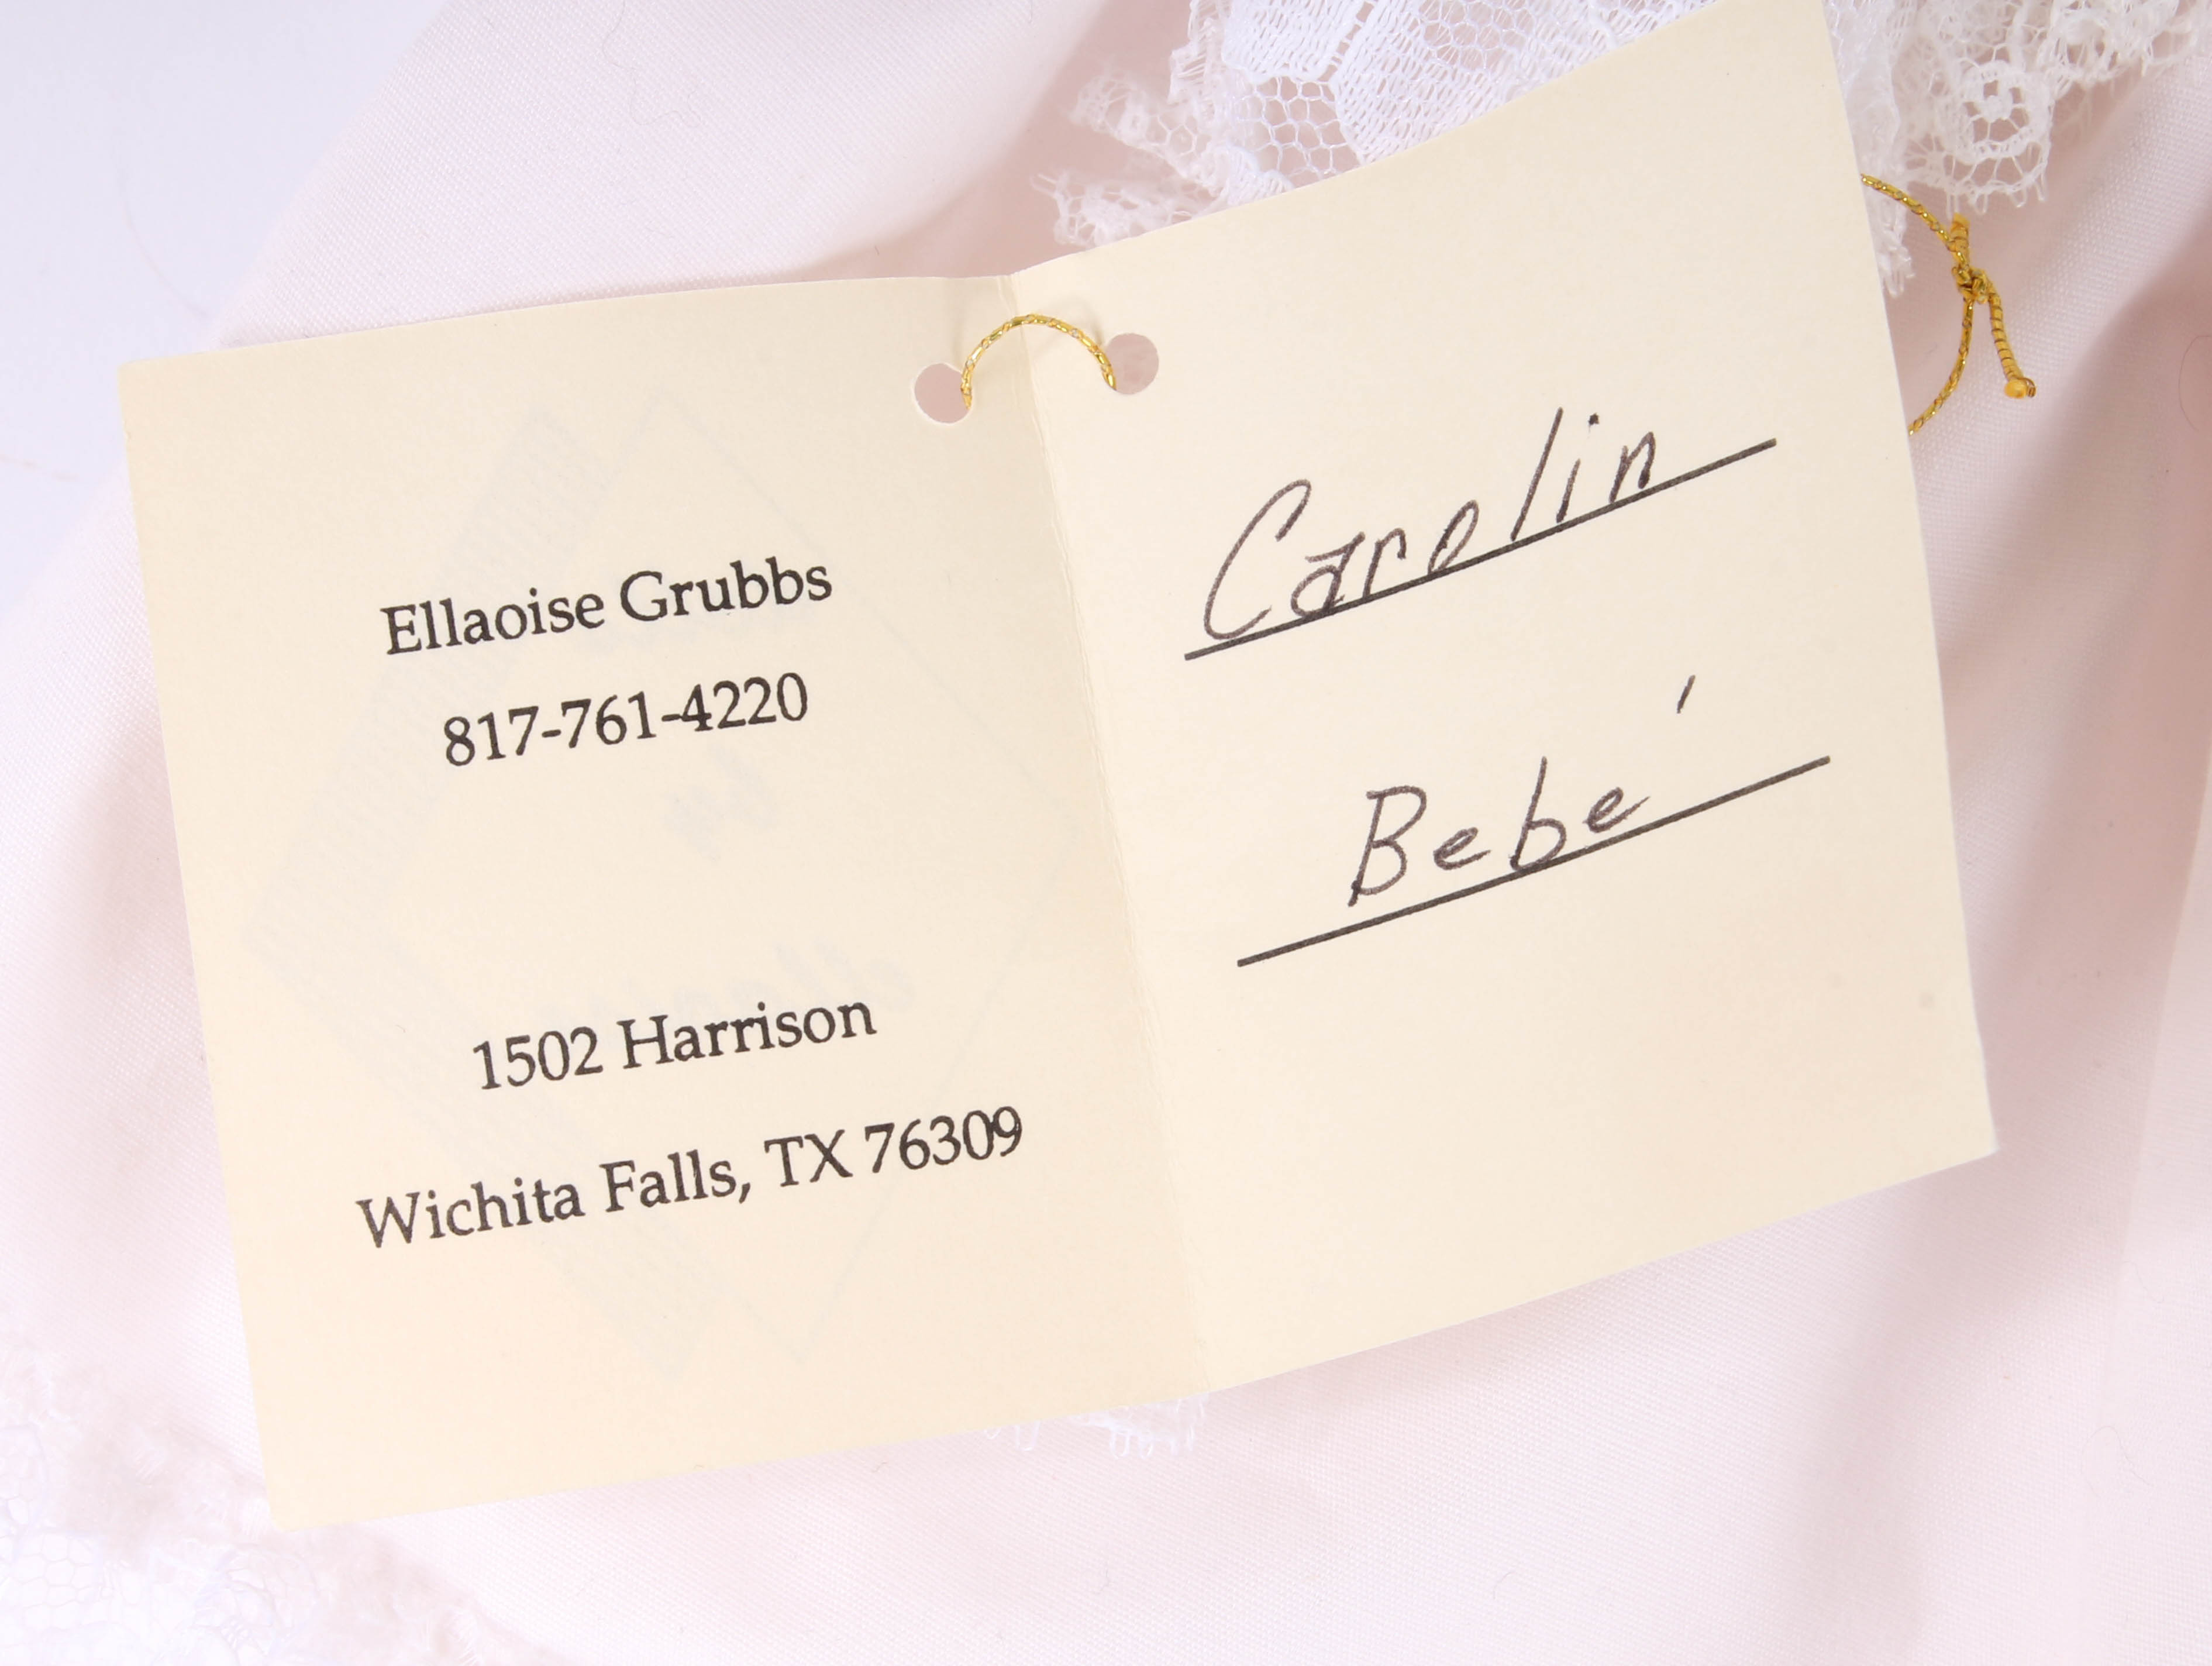 Ellaoise Grubbs
817-761-4220
1502 Harrison
Wichita Falls, TX 76309
Carolin
Bebe'